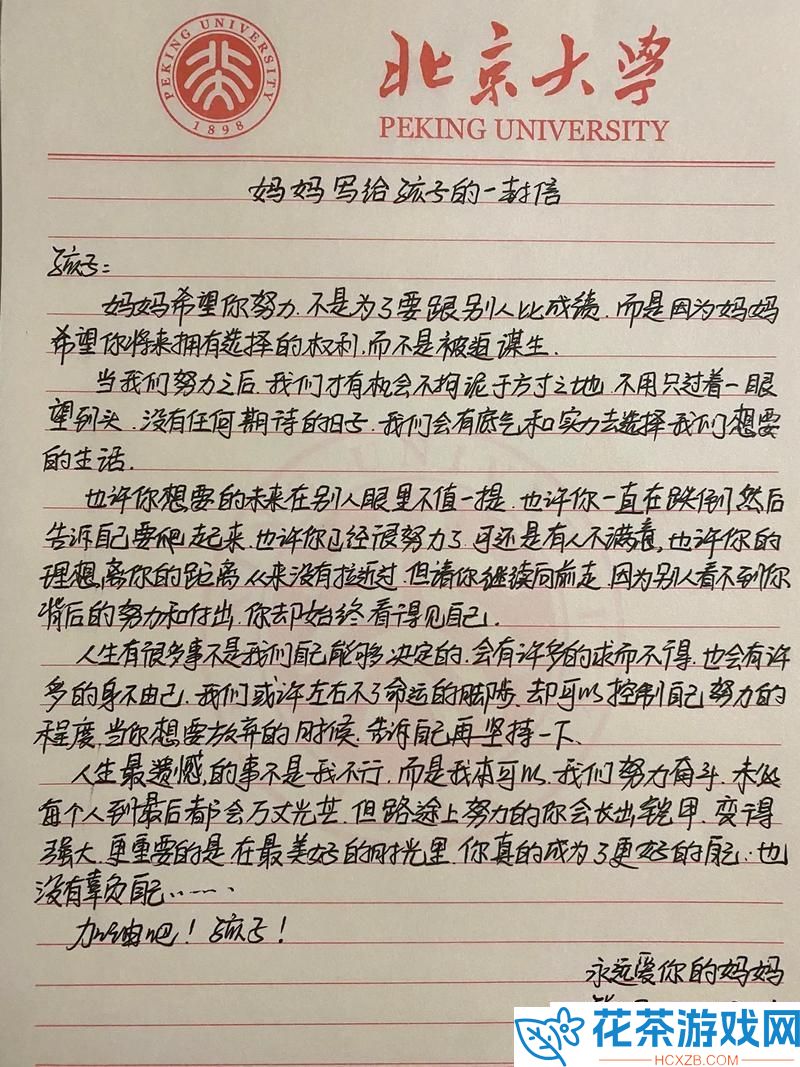 PEKING UNIVERSITY
1898
北京大学
PEKING UNIVERSITY
妈妈写给孩子的一封信
孩子:
妈妈希望你努力.不是为了要跟别人比成绩.而是因为妈妈
希望你将来拥有选择的权利,而不是被迫谋生.
当我们努力之后.我们才有机会不拘泥于方寸之地.不用只过着一眼
望到头.没有任何期待的日子.我们会有底气和实力去选择我们想要
的生活.
也许你想要的未来在别人眼里不值一提.也许你一直在跌倒然后
告诉自己要爬起来.也许你已经很努力了.可还是有人不满意,也许你的
理想,离你的距离从来没有拉近过.但请你继续向前走.因为别人看不到你
背后的努力和付出.你却始终看得见自己.
人生有很多事不是我们自己能够决定的.会有许多的求而不得.也会有许
多的身不由己.我们或许左右不了命运的脚步.却可以控制自己努力的
程度.当你想要放弃的时候.告诉自己再坚持一下、
人生最遗憾的事不是我不行,而是我本可以.我们努力奋斗.未必
每个人到最后都会万丈光芒.但路途上努力的你会长出铠甲.变得
强大.更重要的是在最美好的时光里.你真的成为了更好的自己.也
没有辜负自己……
加油吧!孩子!
永远爱你的妈妈
花茶游戏网
HCXZB.COM